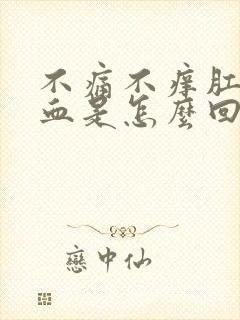 不痛不痒肛
血是怎麼回
戀中仙